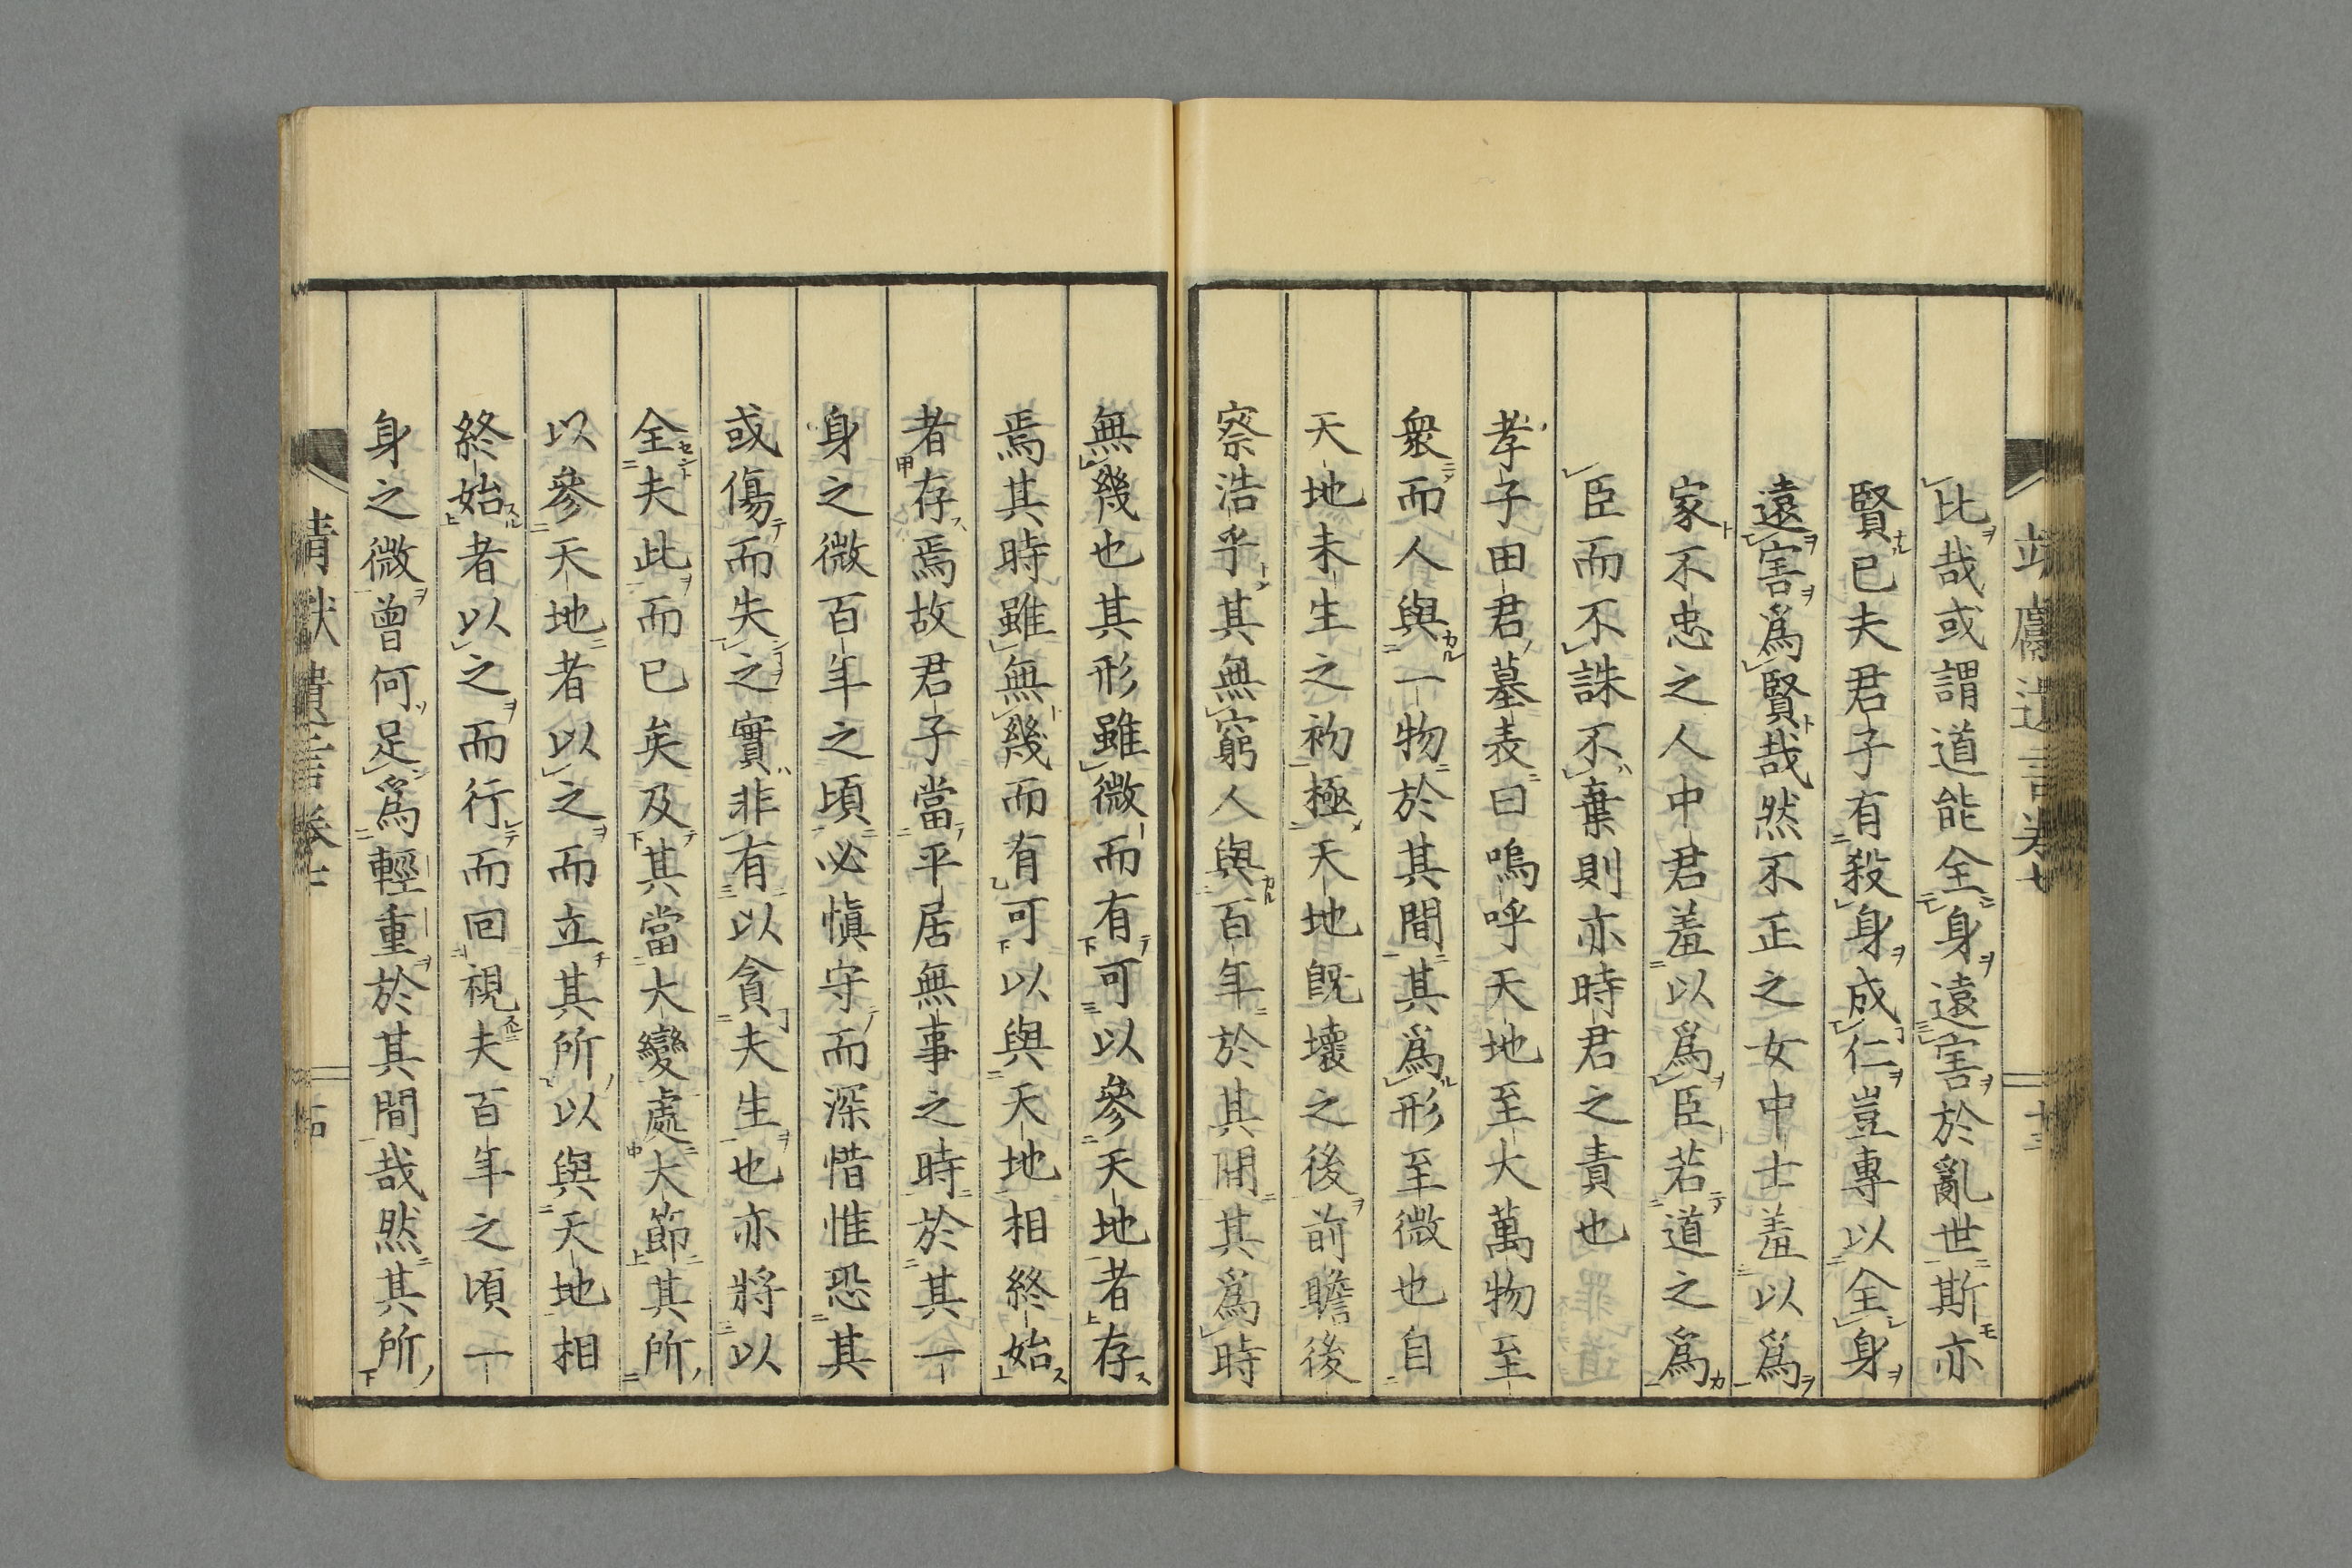 比哉或謂道能全身遠害於亂世斯亦
賢已夫君子有殺身成仁豈專以全身
遠害爲賢哉然不正之女中士羞以爲
家不忠之人中君羞以爲臣若道之爲
臣而不誅不棄則亦時君之責也
孝子田君墓表曰嗚呼天地至大萬物至
衆而人與一物於其間其爲形至微也自
天地未生之初極天地旣壞之後前瞻後
察浩乎其無窮人與百年於其間其爲時
無幾也其形雖微而有可以參天地者存
焉其時雖無幾而有可以與天地相終始
者存焉故君子當平居無事之時於其一
身之微百年之頃必愼守而深惜惟恐其
或傷而失之實非有以貪夫生也亦將以
全夫此而已矣及其當大變處大節其所
以參天地者以之而立其所以與天地相
終始者以之而行而回視夫百年之頃一
身之微曾何足爲輕重於其間哉然其所